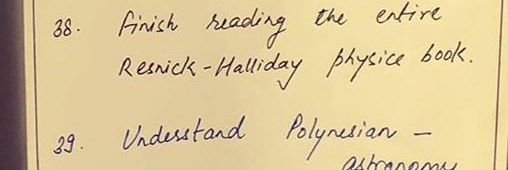 38. Finish reading the entire
Resnick-Halliday physics book.
39. Understand Polynesian -
astronomy